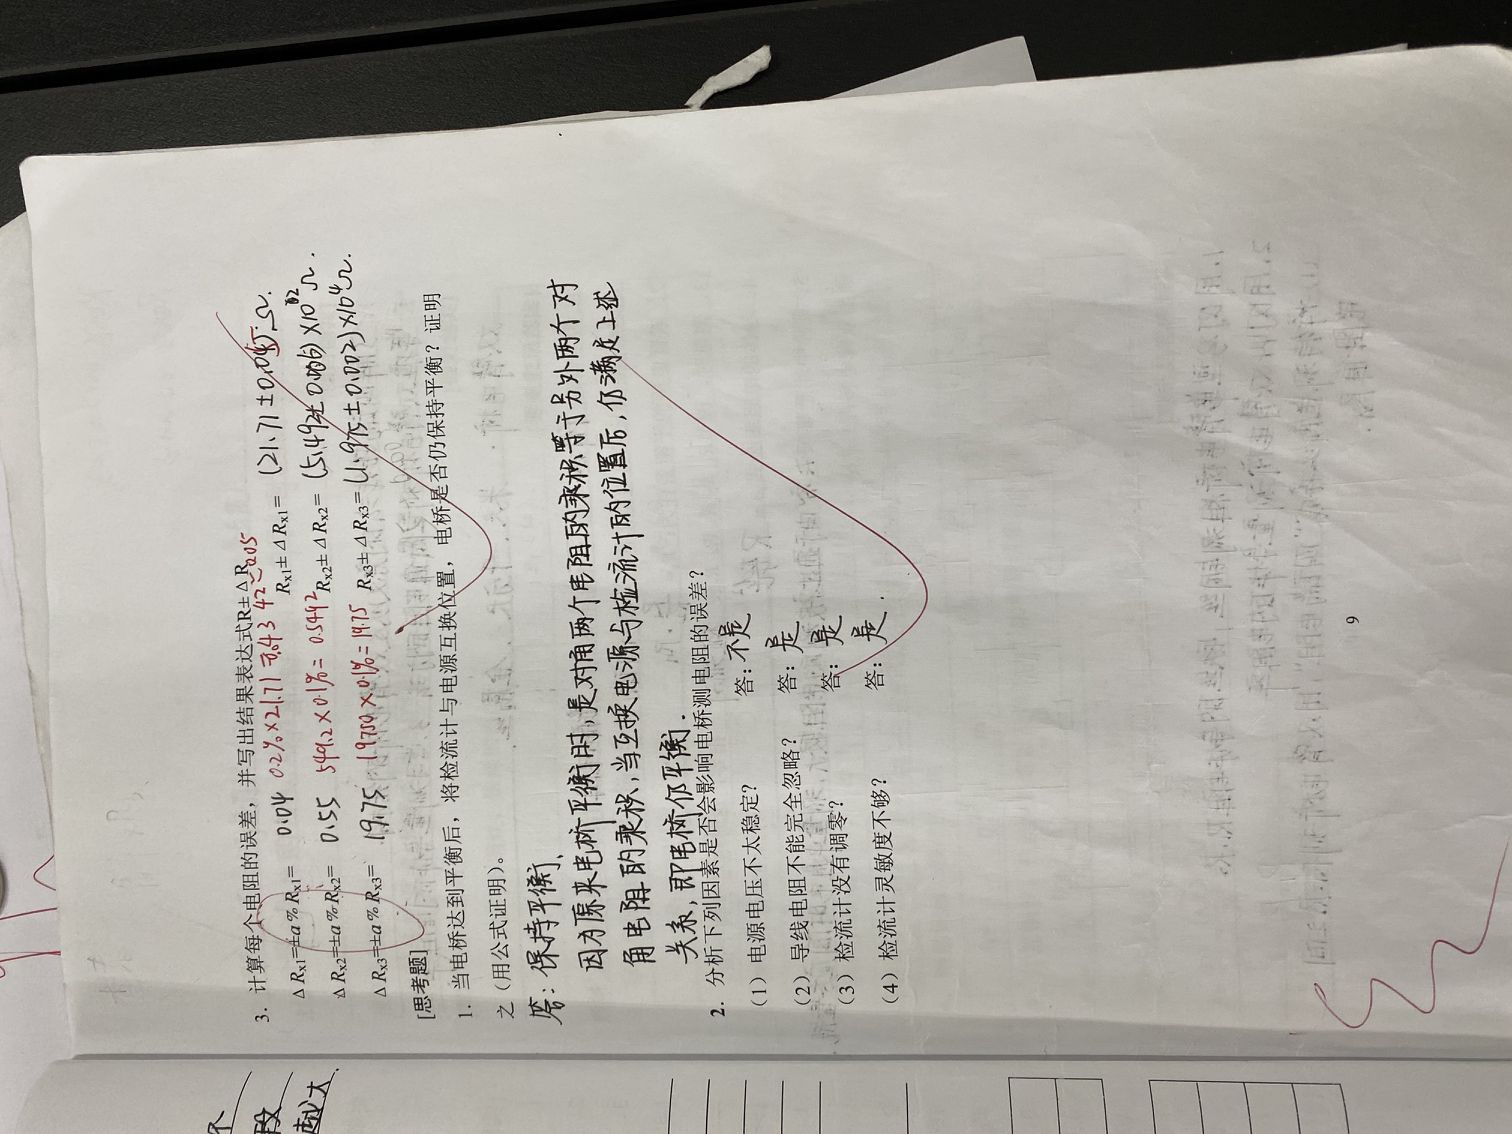 个
段
越大.
3. 计算每个电阻的误差，并写出结果表达式R±ΔR。
ΔRx1=±a%Rx1= 0.04 0.2%×21.71 = 0.0 Rx1±ΔRx1= (21.71±0.05)Ω.
ΔRx2=±a%Rx2= 0.55 549.2×0.1%= 0.5492 Rx2±ΔRx2= (5.492±0.006)×10²Ω.
ΔRx3=±a%Rx3= 19.75 19750×0.1%=19.75 Rx3±ΔRx3= (1.975±0.002)×10⁴Ω.
[思考题]
1. 当电桥达到平衡后，将检流计与电源互换位置，电桥是否仍保持平衡？证明
之（用公式证明）。
答：保持平衡、
因为原来电桥平衡时，是对角两个电阻的乘积等于另外两个对
角电阻的乘积，当互换电源与检流计的位置后，仍满足上述
关系，即电桥仍平衡.
2. 分析下列因素是否会影响电桥测电阻的误差？
（1）电源电压不太稳定? 答：不是
（2）导线电阻不能完全忽略? 答：是
（3）检流计没有调零? 答：是
（4）检流计灵敏度不够? 答：是.
9